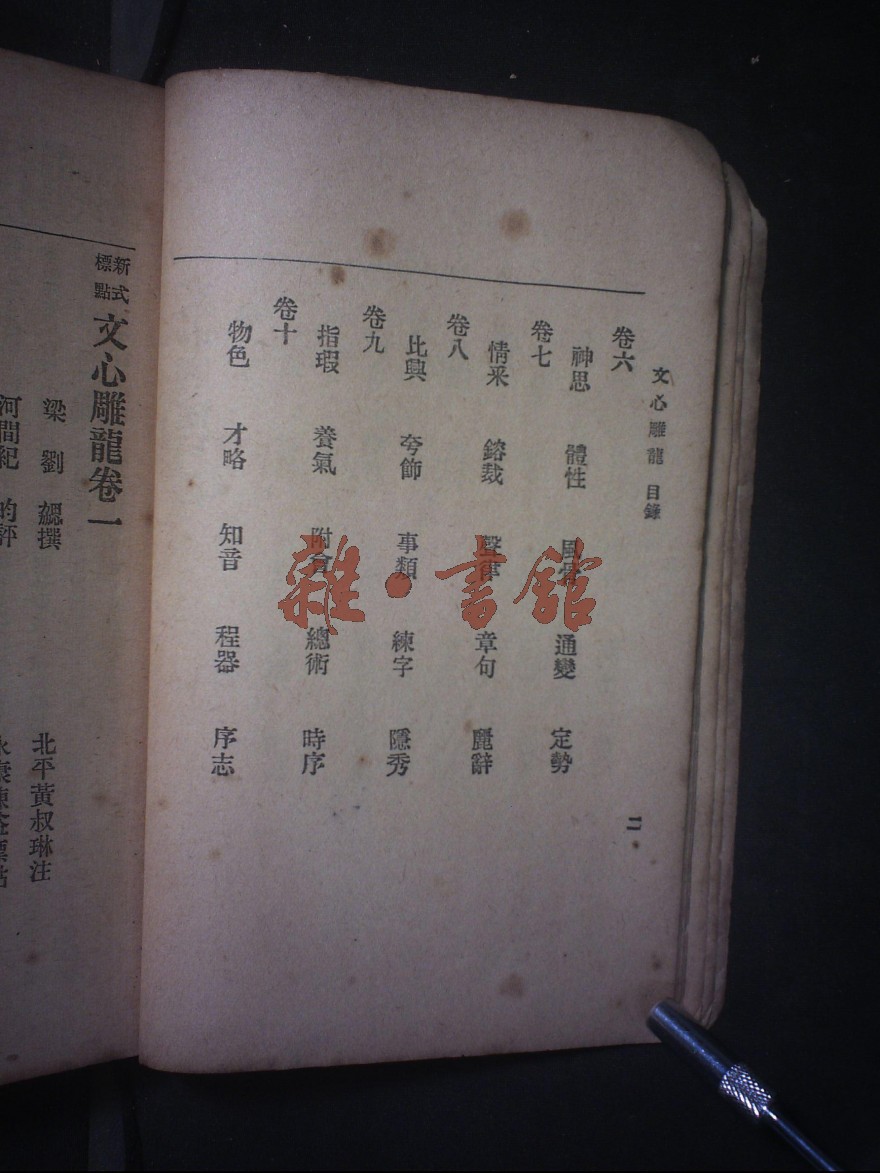 文心雕龍 目錄 二
卷六
神思 體性 風骨 通變 定勢
卷七
情采 鎔裁 聲律 章句 麗辭
卷八
比興 夸飾 事類 練字 隱秀
卷九
指瑕 養氣 附會 總術 時序
卷十
物色 才略 知音 程器 序志
雜·書館
新式標點 文心雕龍卷一
梁 劉 勰撰
北平黃叔琳注
河間紀 昀評